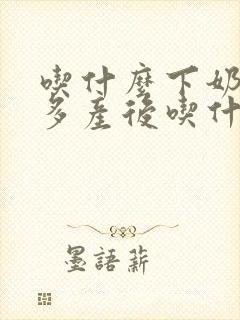 喫什麼下奶
多產後喫什
墨語薪